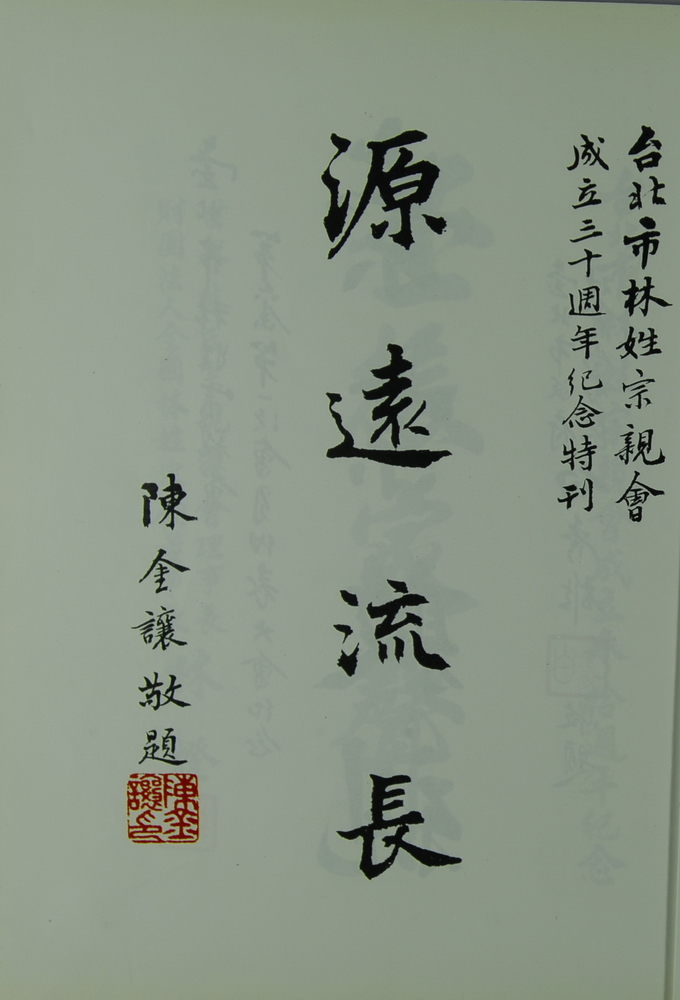 台北市林姓宗親會
成立三十週年紀念特刊
源遠流長
陳金讓敬題
陳金讓印